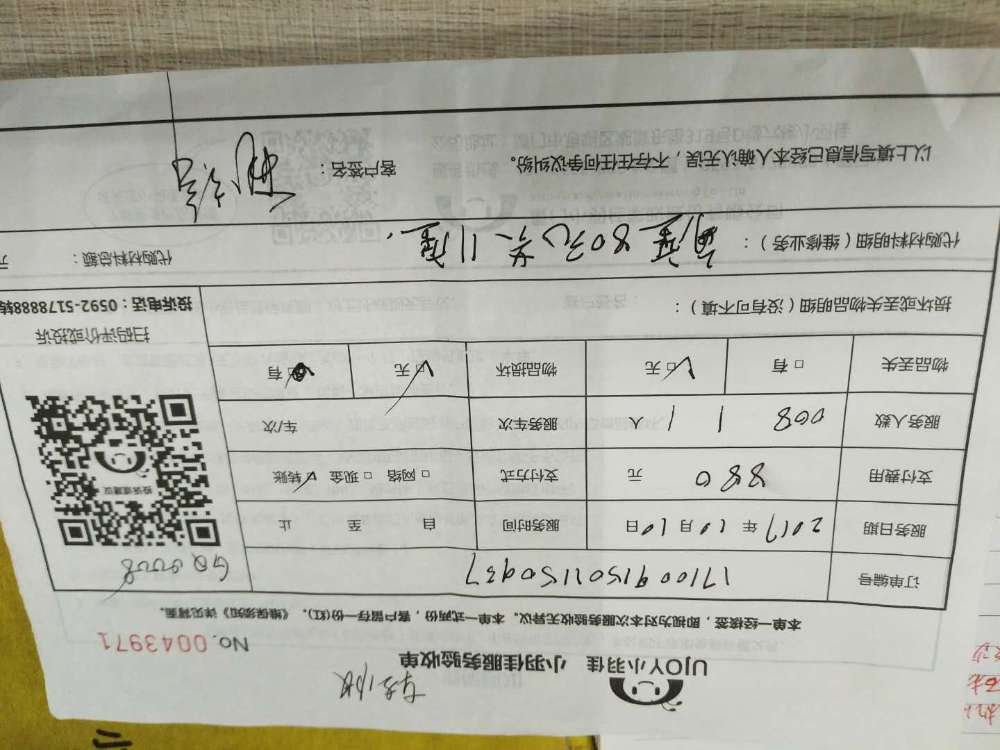 UJOY小羽佳 小羽佳服务验收单
No. 0043971
本单一经核签，即视为对本次服务验收无异议。本单一式两份，客户留存一份(红)。《维保须知》详见背面。
订单编号 171009150115 0937
GQ 0008
服务日期 2017年10月10日 服务时间 自 至 止
支付费用 880 元 支付方式 □网络 □现金 ☑转账
服务人数 008 1 1 人 服务车次 车/次
物品丢失 □有 ☑无 物品损坏 ☑无 □有
扫码评价或投诉
投诉电话：0592-5178888转
损坏或丢失物品明细（没有可不填）：
代购材料明细（维修业务）： 80元 共11
代购材料总额： 元
以上填写信息已经本人确认无误，不存在任何争议纠纷。 客户签名：